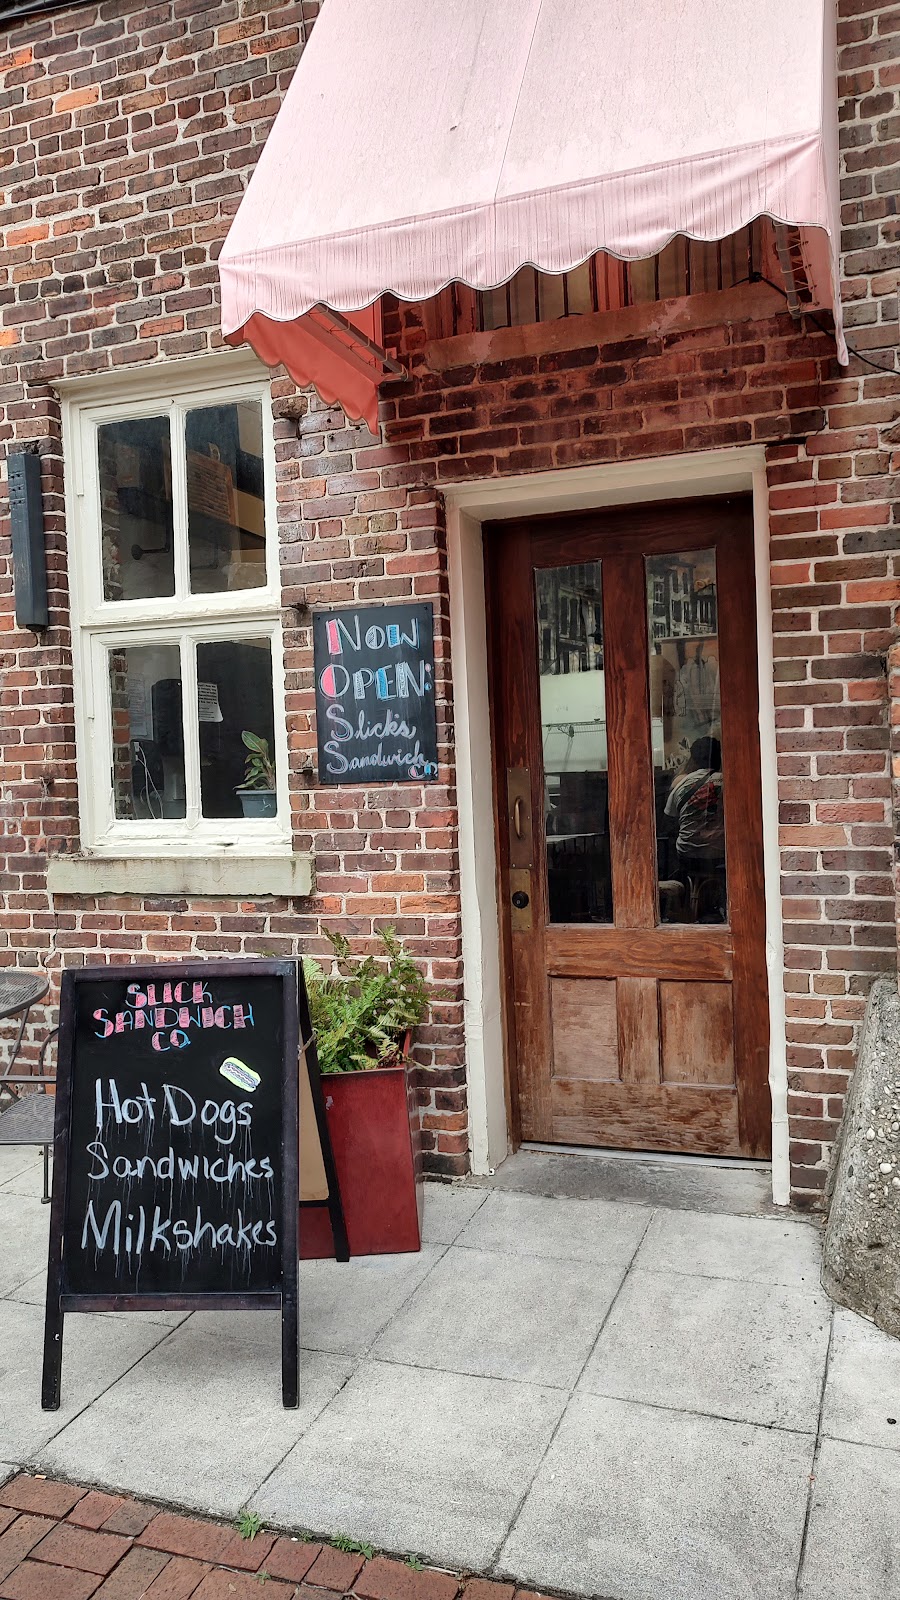 Now
Open:
Slick's
Sandwich
Co
Slick
Sandwich
Co.
Hot Dogs
Sandwiches
Milkshakes